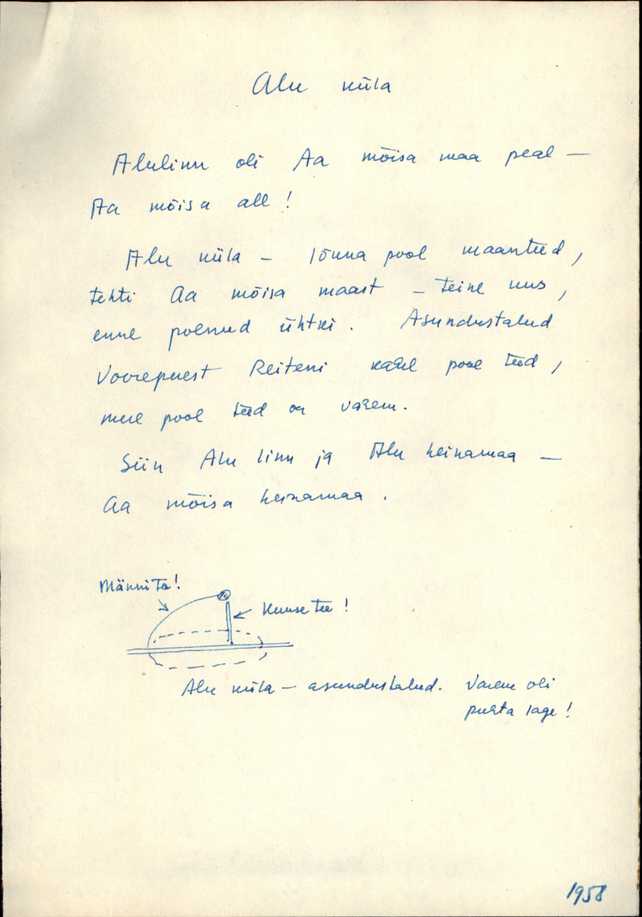 Alu küla
Alulinn oli Aa mõisa maa peal –
Aa mõisa all!
Alu küla – lõuna pool maanteed,
tehti Aa mõisa maast – teine uus,
enne polnud ühtki. Asundustalud
Voorepuest Reiteni kahel pool teed,
meie pool teed on vähem.
Siin Alu linn ja Alu heinamaa –
Aa mõisa heinamaa.
Männita!
Kuuse tee!
Alu küla – asundustalud. Varem oli
puhta lage!
1958